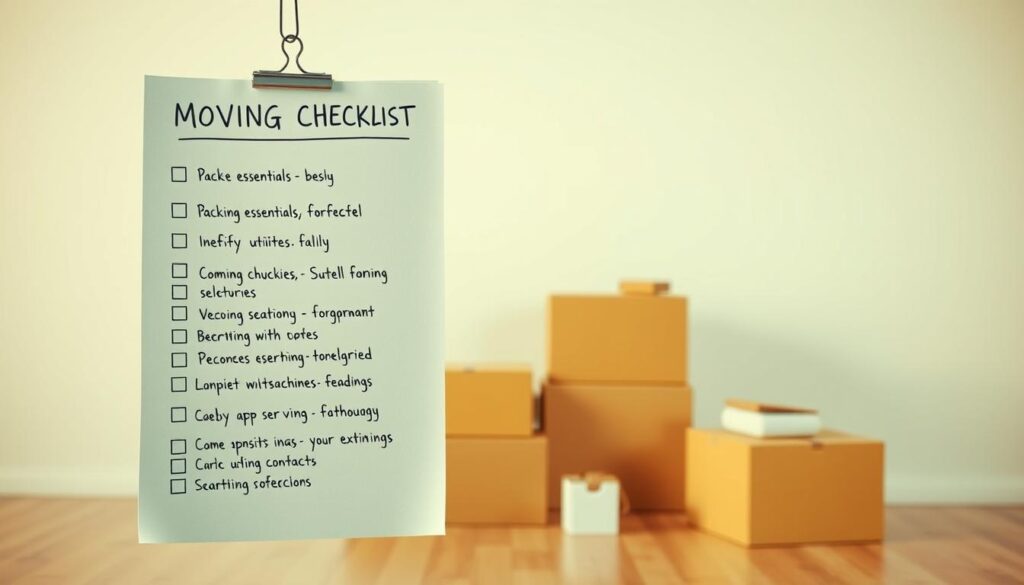 MOVING CHECKLIST
Packe essentials - besly
Packing essentials, forfectel
Inefify utiites. falily
Coming chuckies, - Sutell foning
selcturies
Vecoing seationy - forgornant
Becrtting with optes
Peconces eserting - tonelgried
Lanpiet wiltsachines - feadings
Caeby app ser ving - fathougy
Come ipnsits inas - your extinings
Carlc urling contacts
Searthing sofercions